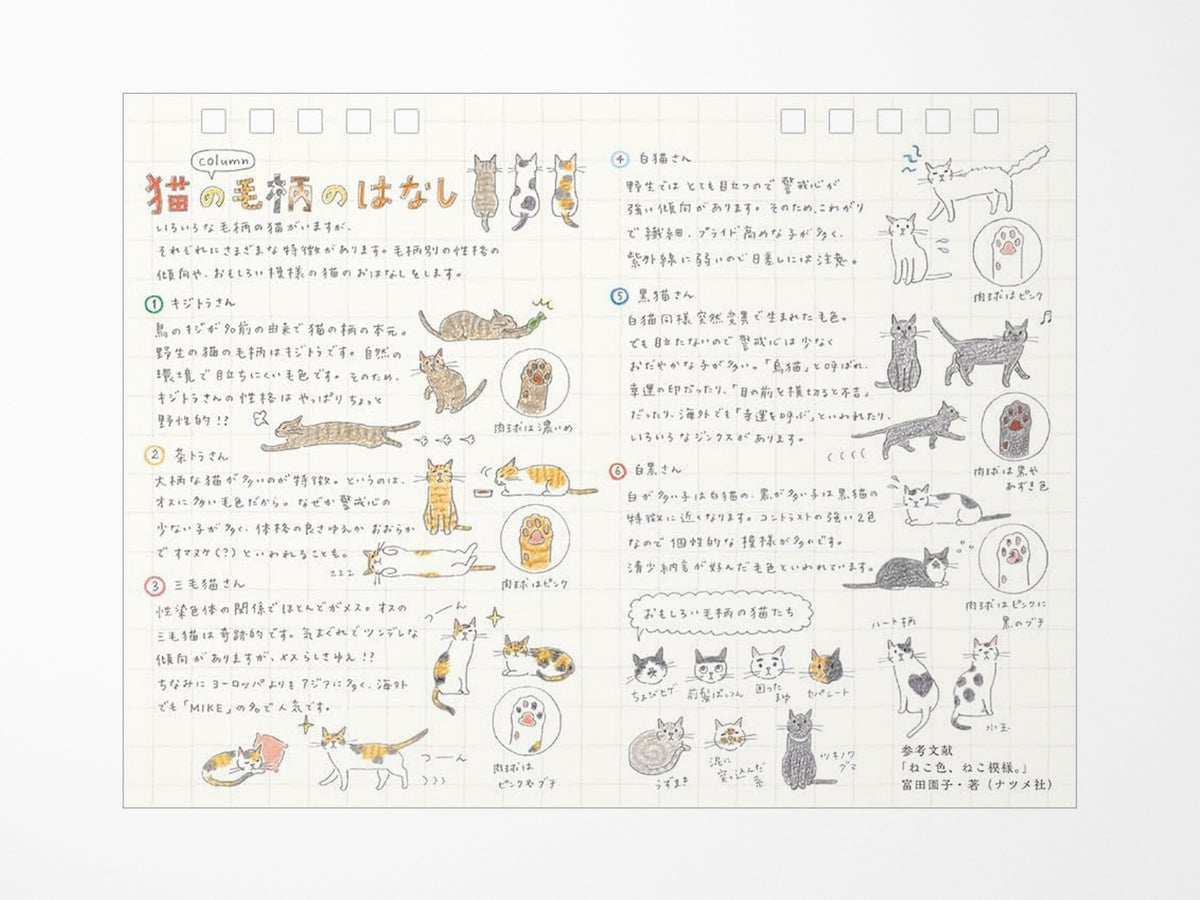 column
猫の毛柄のはなし
いろいろな毛柄の猫がいますが、
それぞれにさまざまな特徴があります。毛柄別の性格の
傾向や、おもしろい模様の猫のおはなしをします。
1 キジトラさん
鳥のキジが名前の由来で猫の柄の本元。
野生の猫の毛柄はキジトラです。自然の
環境で目立ちにくい毛色です。そのため、
キジトラさんの性格はやっぱりちょっと
野性的!?
肉球は濃いめ
2 茶トラさん
大柄な猫が多いのが特徴。というのは、
オスに多い毛色だから。なぜか警戒心の
少ない子が多く、体格の良さゆえかおおらか
でオマヌケ(?)といわれることも。
zzz
肉球はピンク
3 三毛猫さん
性染色体の関係でほとんどがメス。オスの
三毛猫は奇跡的です。気まぐれでツンデレな
傾向がありますが、メスらしさゆえ!?
ちなみにヨーロッパよりもアジアに多く、海外
でも「MIKE」の名で人気です。
つーん
つーん
肉球は
ピンクやブチ
4 白猫さん
野生ではとても目立つので警戒心が
強い傾向があります。そのため、こわがり
で繊細、プライド高めな子が多く、
紫外線に弱いので日差しには注意。
肉球はピンク
5 黒猫さん
白猫同様突然変異で生まれた毛色。
でも目立たないので警戒心は少なく
おだやかな子が多い。「烏猫」と呼ばれ、
幸運の印だったり、「目の前を横切ると不吉」
だったり、海外でも「幸運を呼ぶ」といわれたり、
いろいろなジンクスがあります。
肉球は黒や
あずき色
6 白黒さん
白が多い子は白猫の、黒が多い子は黒猫の
特徴に近くなります。コントラストの強い2色
なので個性的な模様が多いです。
清少納言が好んだ毛色といわれています。
肉球はピンクに
黒のブチ
おもしろい毛柄の猫たち
ちょびヒゲ
前髪ぱっつん
困った
まゆ
セパレート
うずまき
泥に
突っ込んだ
系
ツキノワ
グマ
ハート柄
水玉
参考文献
「ねこ色、ねこ模様。」
富田園子・著(ナツメ社)